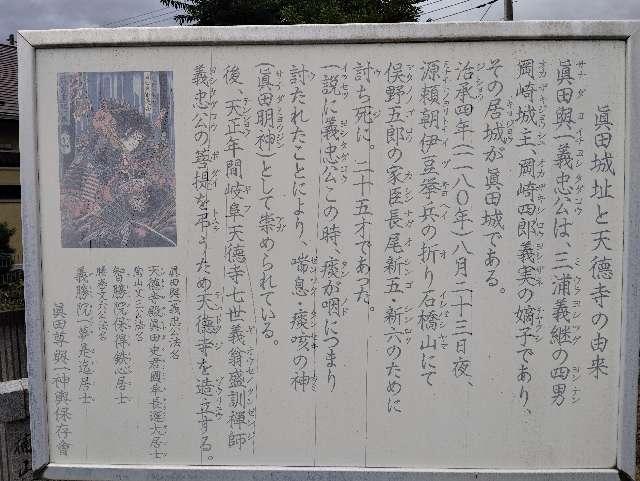 眞田城址と天徳寺の由来
眞田與一義忠公は、三浦義継の四男
岡崎城主、岡崎四郎義実の嫡子であり、
その居城が眞田城である。
治承四年(一一八〇年)八月二十三日夜、
源頼朝伊豆挙兵の折り石橋山にて
俣野五郎の家臣長尾新五・新六のために
討ち死に。二十五才であった。
一説に義忠公この時、痰が咽につまり
討たれたことにより、喘息・痰咳の神
(眞田明神)として崇められている。
後、天正年間岐阜天徳寺七世義翁盛訓禅師
義忠公の菩提を弔うため天徳寺を造立する。
眞田與一義忠公法名
天徳寺殿眞田史君國
大居士
陶山文三公法名
智勝院保得鉄心居士
義勝院
居士
眞田尊與一神輿保存會